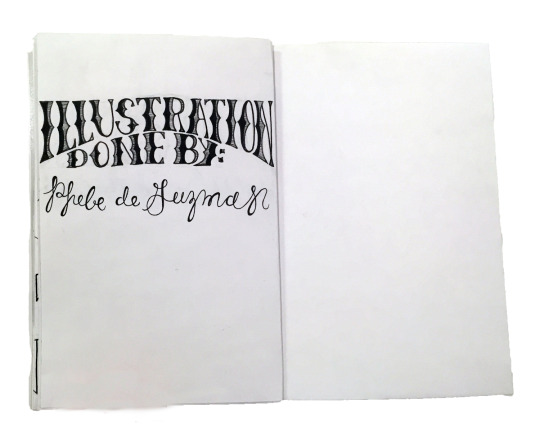 ILLUSTRATION
DONE BY:
Phebe de Guzman